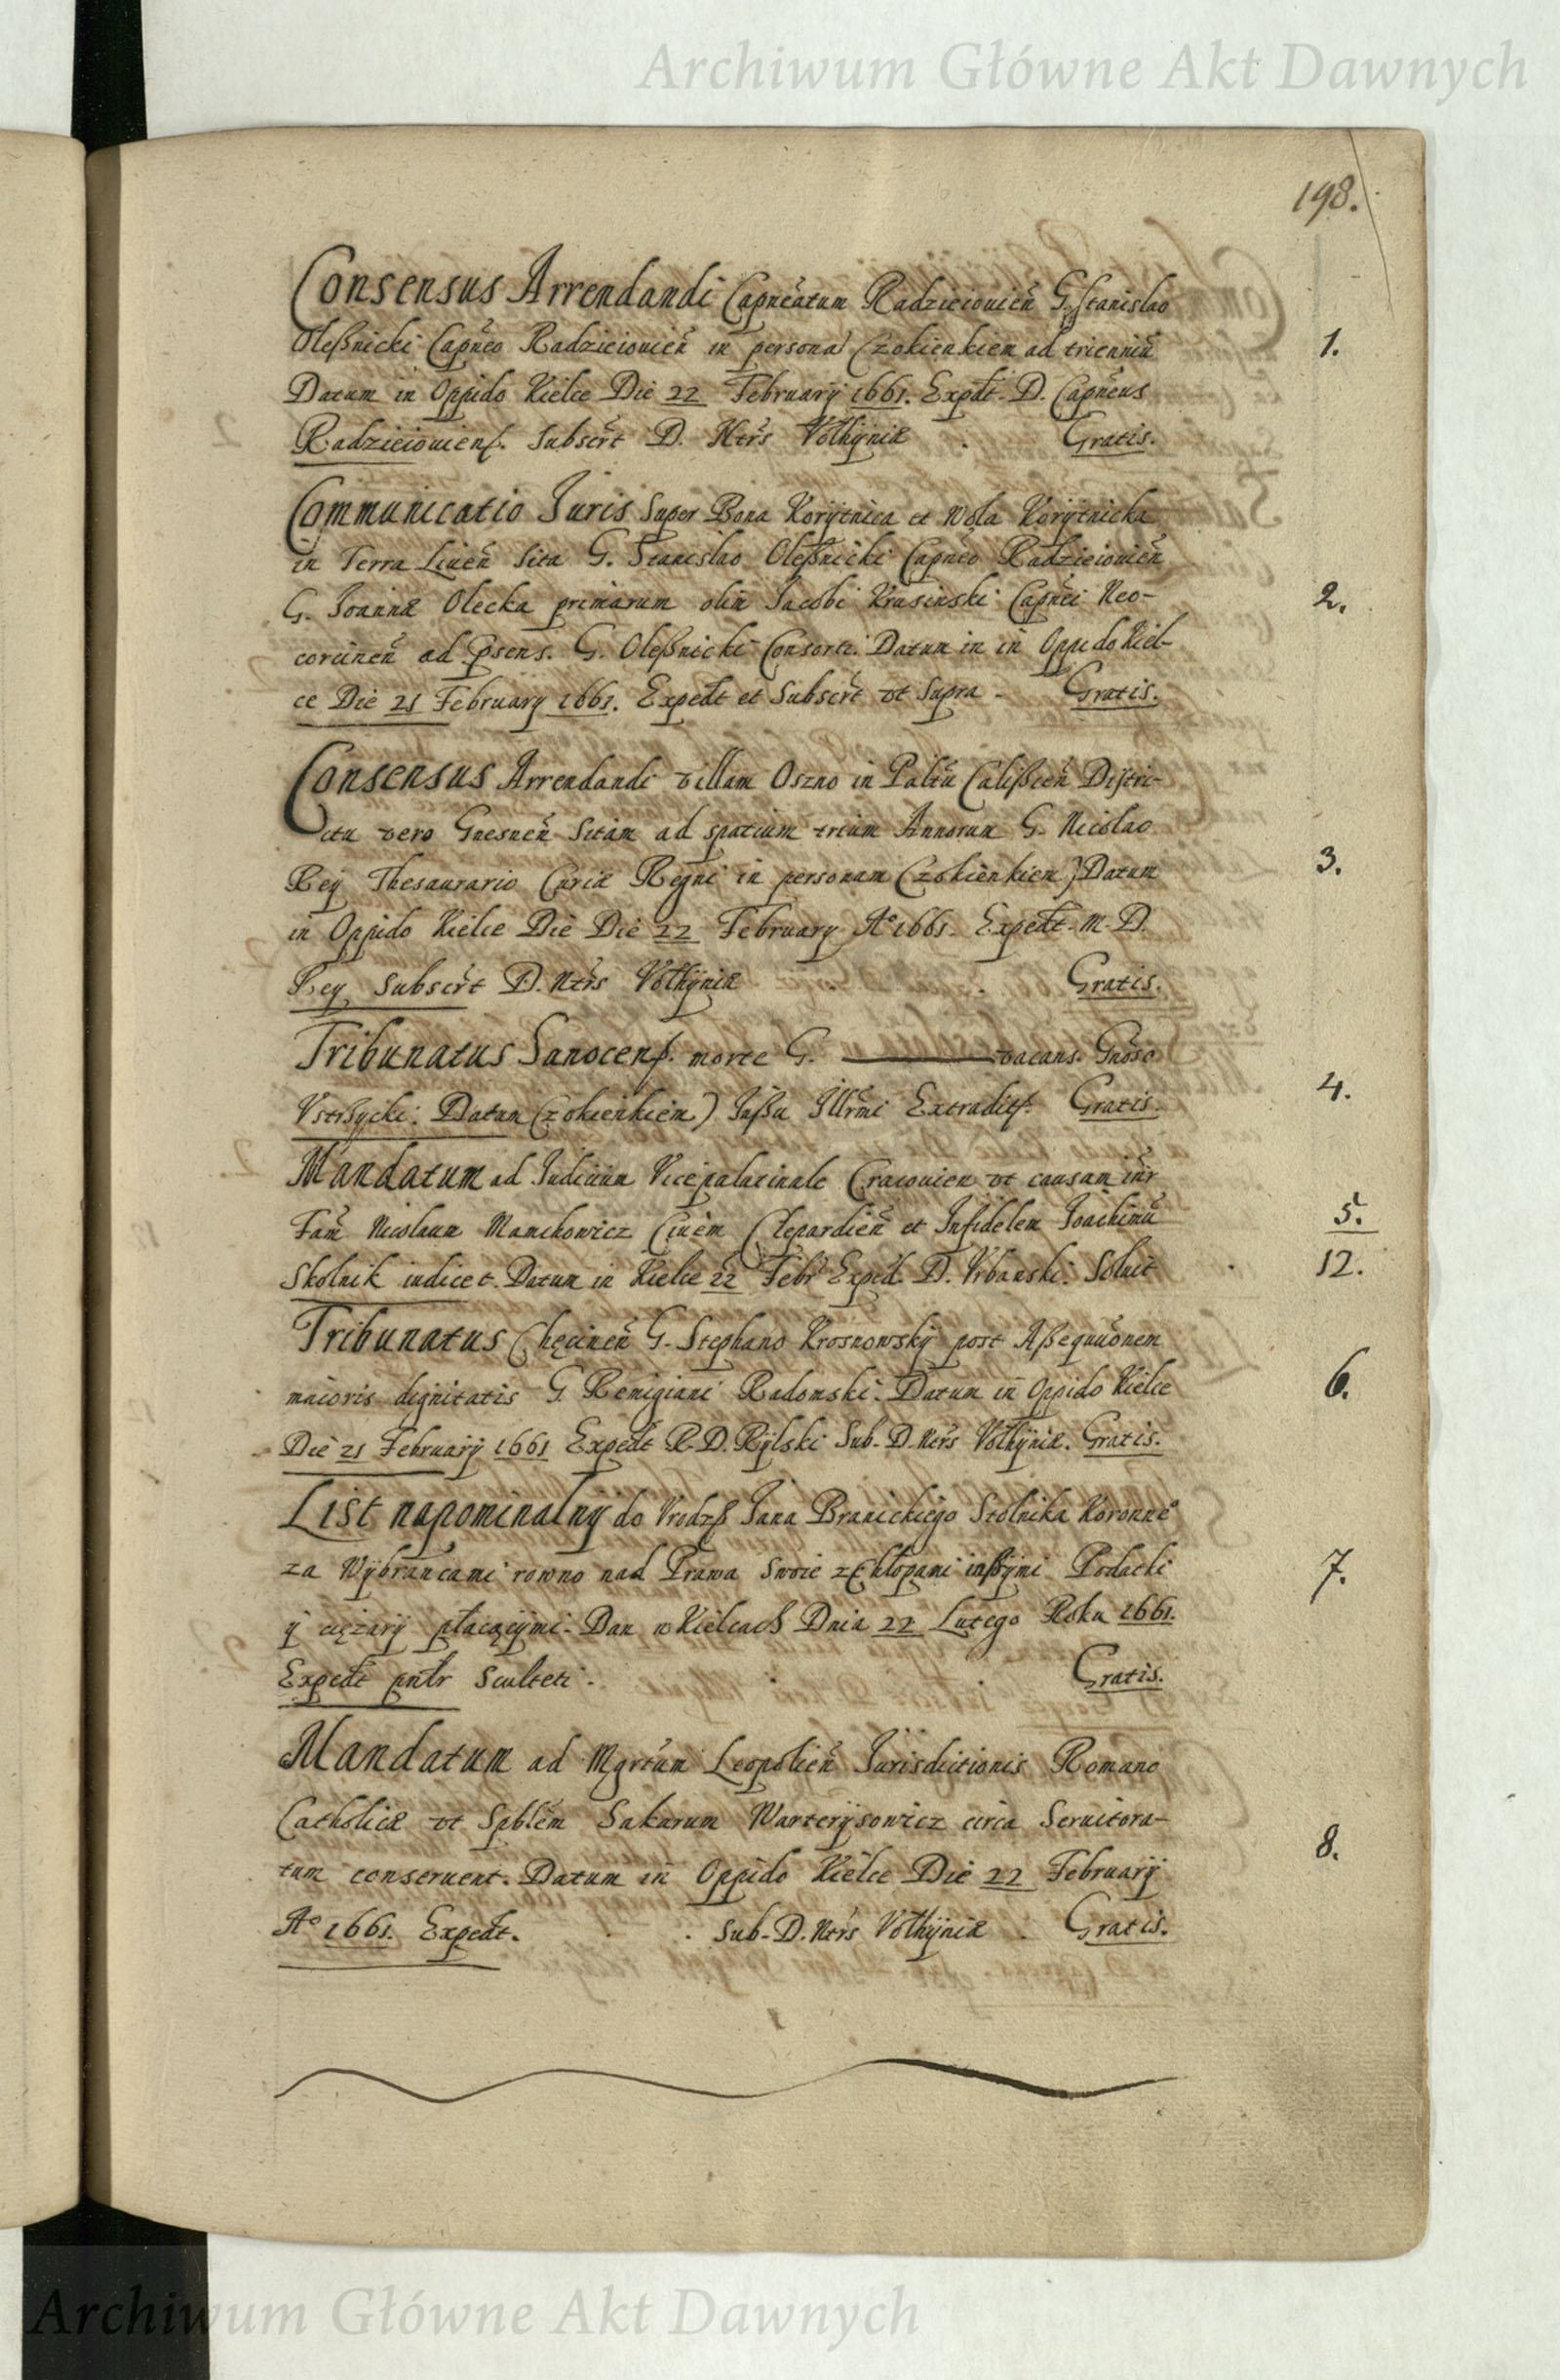 Archiwum Główne Akt Dawnych
198.
Consensus Arrendandi Capneatum Radzieiouien G. Stanislao
Oleßnicki Capneo Radzieiouien in persona Czokienkien ad trienniu 1.
Datum in Oppido Kielce Die 22 February 1661. Expdt. D. Capneus
Radzieiouiens. Subscrt D. Ntrs Volhyniæ Gratis.
Communicatio Iuris Super Bona Korytnica et Wola Korytnicka
in Terra Liuen Sita G. Stanislao Oleßnicki Capneo Radzieiouien
G. Ioannæ Olecka primarum olim Jacobi Krasinski Capnei Neo- 2.
corcinen ad psens. G. Oleßnicki Consorti. Datum in in Oppido Kiel-
ce Die 21 February 1661. Expedt et Subscrt vt Supra - Gratis.
Consensus Arrendandi villam Oszno in Paltu Calißien Distri-
ctu vero Gnesnen Sitam ad spatium trium Annorum G. Nicolao
Rey Thesaurario Curiæ Regni in personam Czokienkiem) Datum 3.
in Oppido Kielce Die Die 22 February Aº 1661. Expedt. M. D.
Rey Subscrt D. Ntrs Volhyniæ Gratis.
Tribunatus Sanocens. morte G. vacans. Gnoso
Vstrßycki: Datum Czokienkiem) Jußu Illrmi Extradits. Gratis. 4.
Mandatum ad Iudicium Vicepalatinale Cracouien vt causam intr
Fam Nicolaum Manchowicz Ciuem Clepardien et Infidelem Joachimu 5.
Skolnik iudicet. Datum in Kielce 22 Febr Exped. D. Vrbanski. Soluit 12.
Tribunatus Chęcinen G. Stephano Krosnowsky post Aßequuonem
maioris dignitatis G. Remigiani Radomski. Datum in Oppido Kielce 6.
Die 21 February 1661 Expedt R. D. Rylski Sub. D. Ntrs Volhyniæ. Gratis.
List napominalny do Vrodzß Jana Branickiego Stolnika Koronneº
za Wybrancami rowno nad Prawa Swoie z Chłopami inßymi Podatki 7.
y ciężary płacącymi. Dan w Kielcach Dnia 22 Lutego Roku 1661.
Expedt pntr Sculteti. Gratis.
Mandatum ad Mgrtum Leopolien Jurisdictionis Romano
Catholicæ vt Spblem Sakarum Warterysowicz circa Seruitora- 8.
tum conseruent. Datum in Oppido Kielce Die 22 February
Aº 1661. Expedt. Sub. D. Ntrs Volhyniæ Gratis.
Archiwum Główne Akt Dawnych